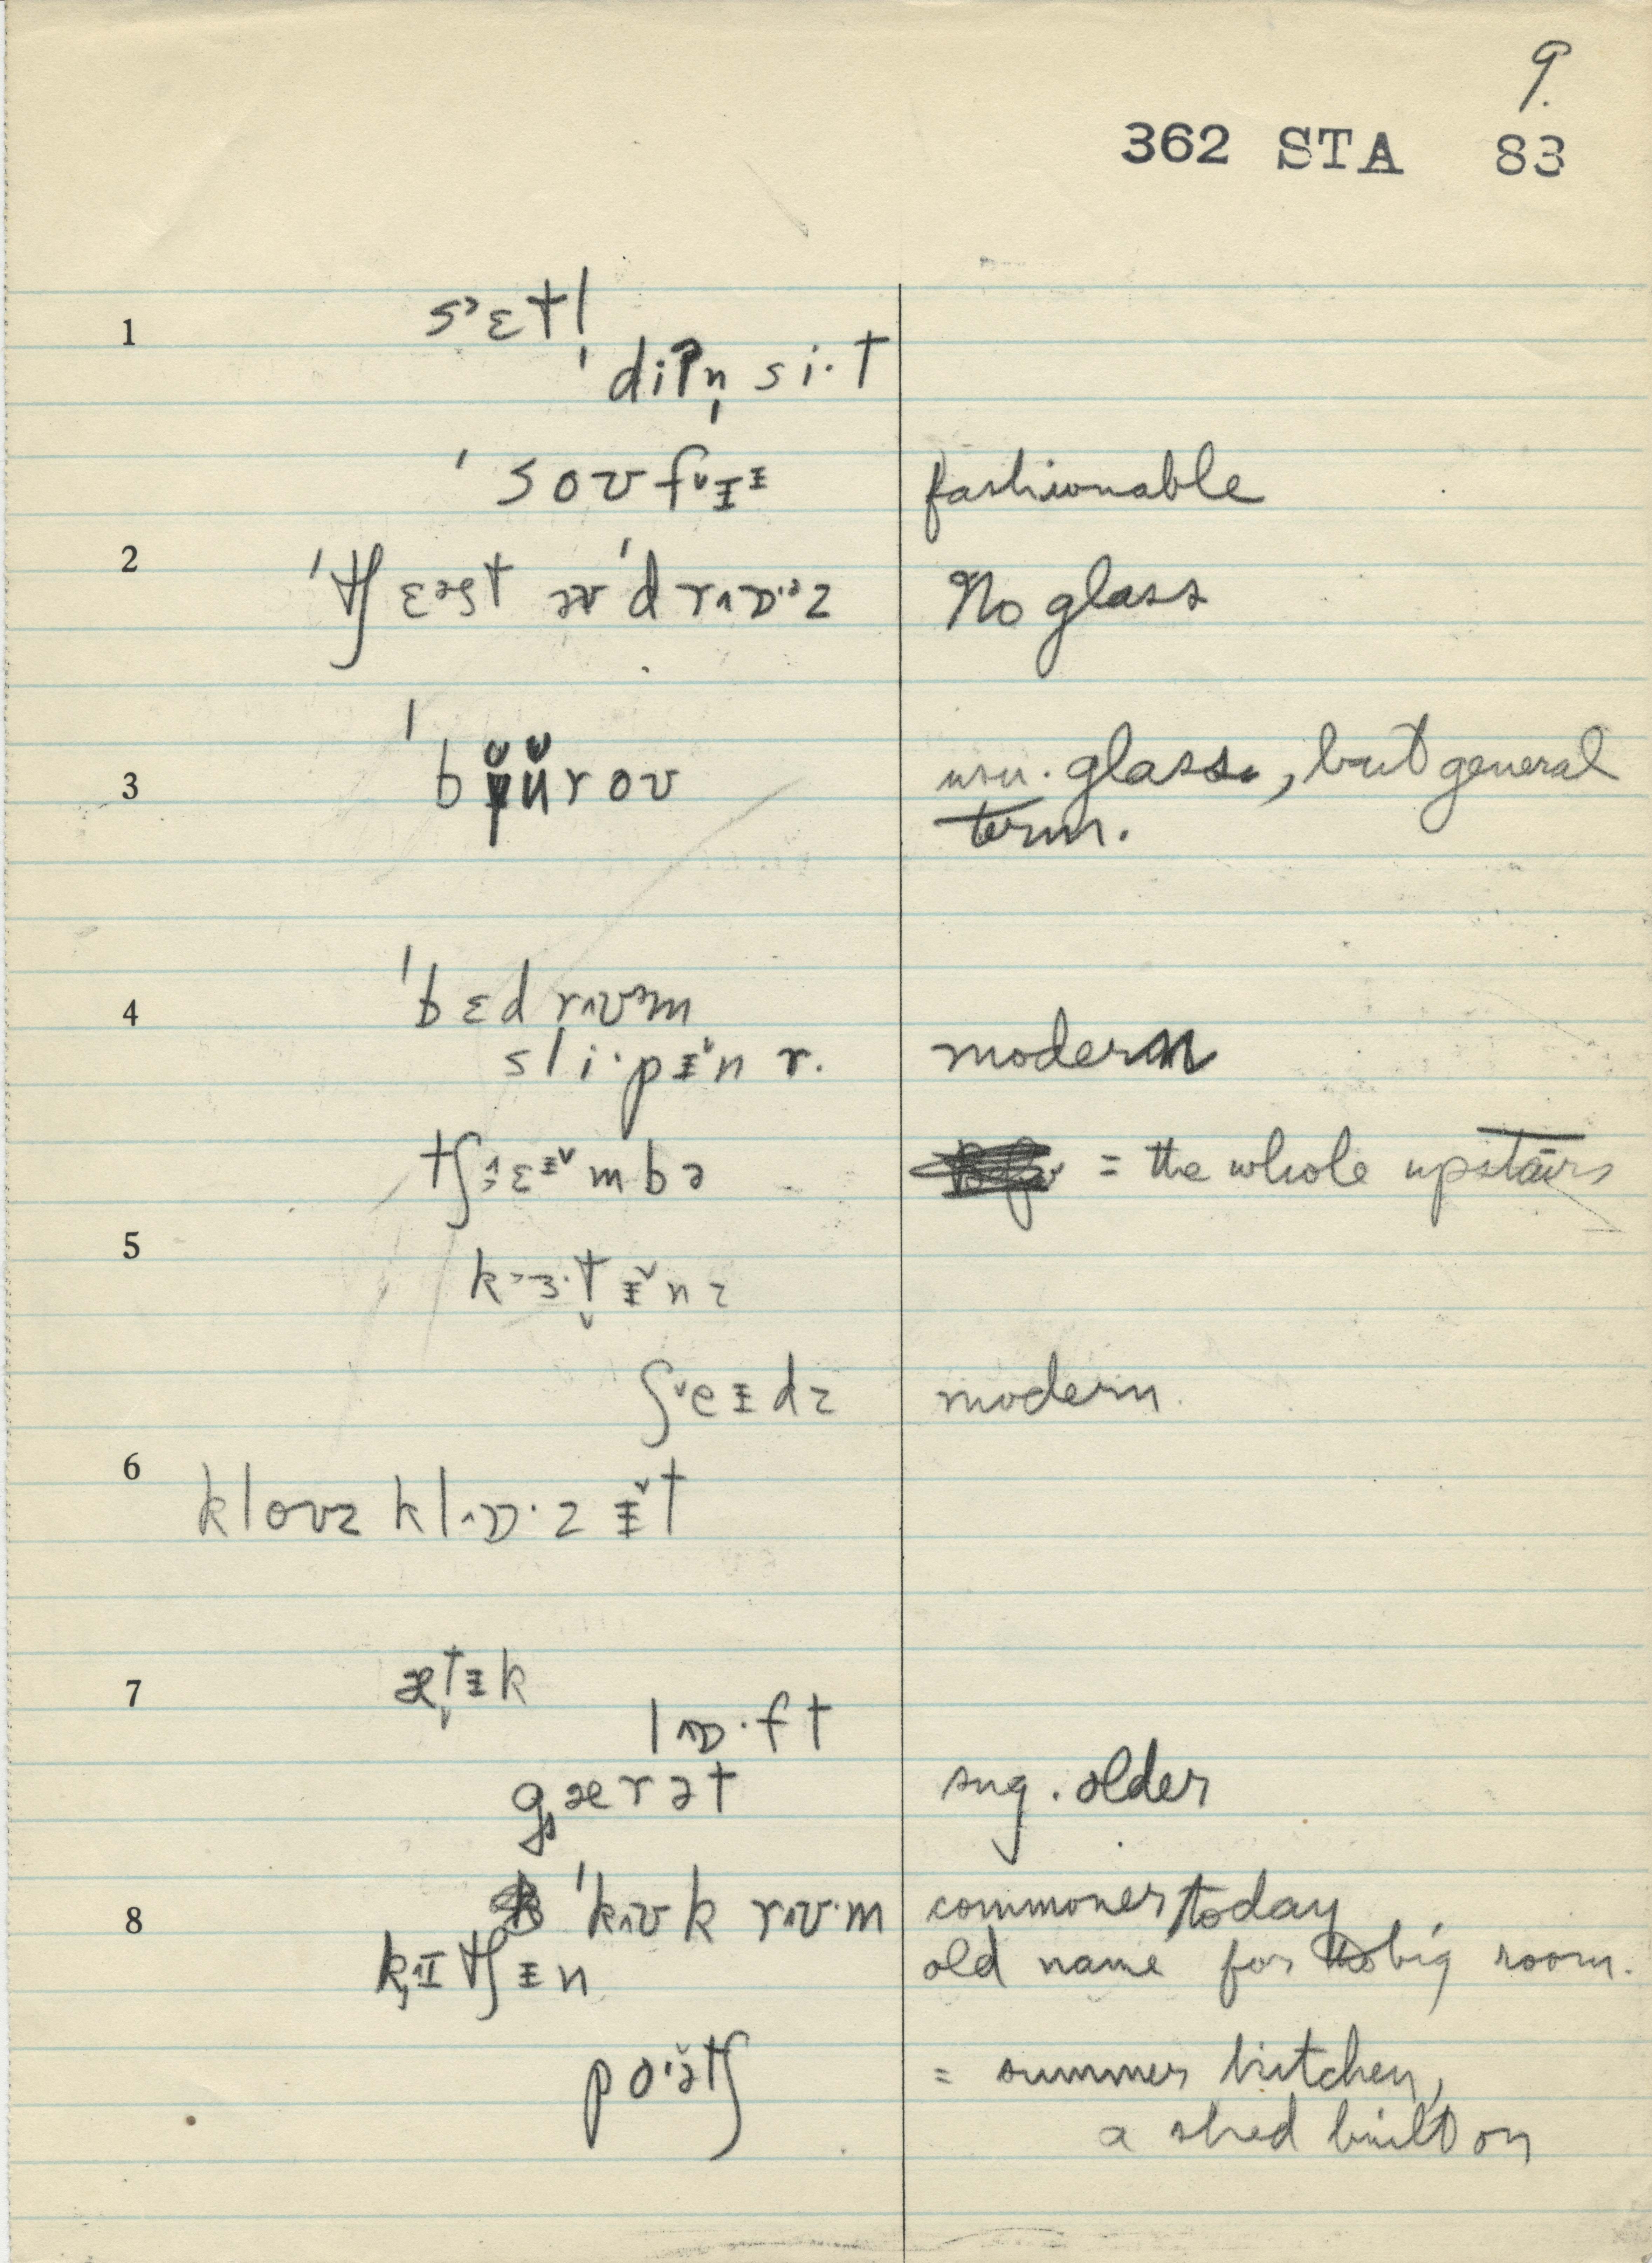 9.
362 STA 83
1 sˀɛtl
ˈdiʔn̩ si·t
ˈsoʊfᵛɪᵻ fashionable
2 ˈtʃɛəst əvˈdrʌɒ·ᵊz No glass
3 ˈbɪ̯̆ʉ̆roʊ usu. glass, but general
term.
4 ˈbɛd rʌʊᵊm
sli·pᵻ̌n r. modern
tʃɛᵻ̌mbə = the whole upstairs
5 kɜ·t̬ᵻ̌nz
ʃˇeᵻdz modern.
6 kloʊz klʌɒ·zᵻ̌t
7 æt̬ᵻk
lʌɒ·ft
gærət sug. older
8 ˈkʌʊk rʌʊ·m commoner today
kɪtʃᵻn old name for big room.
po·ə̆tʃ = summer kitchen,
a shed built on